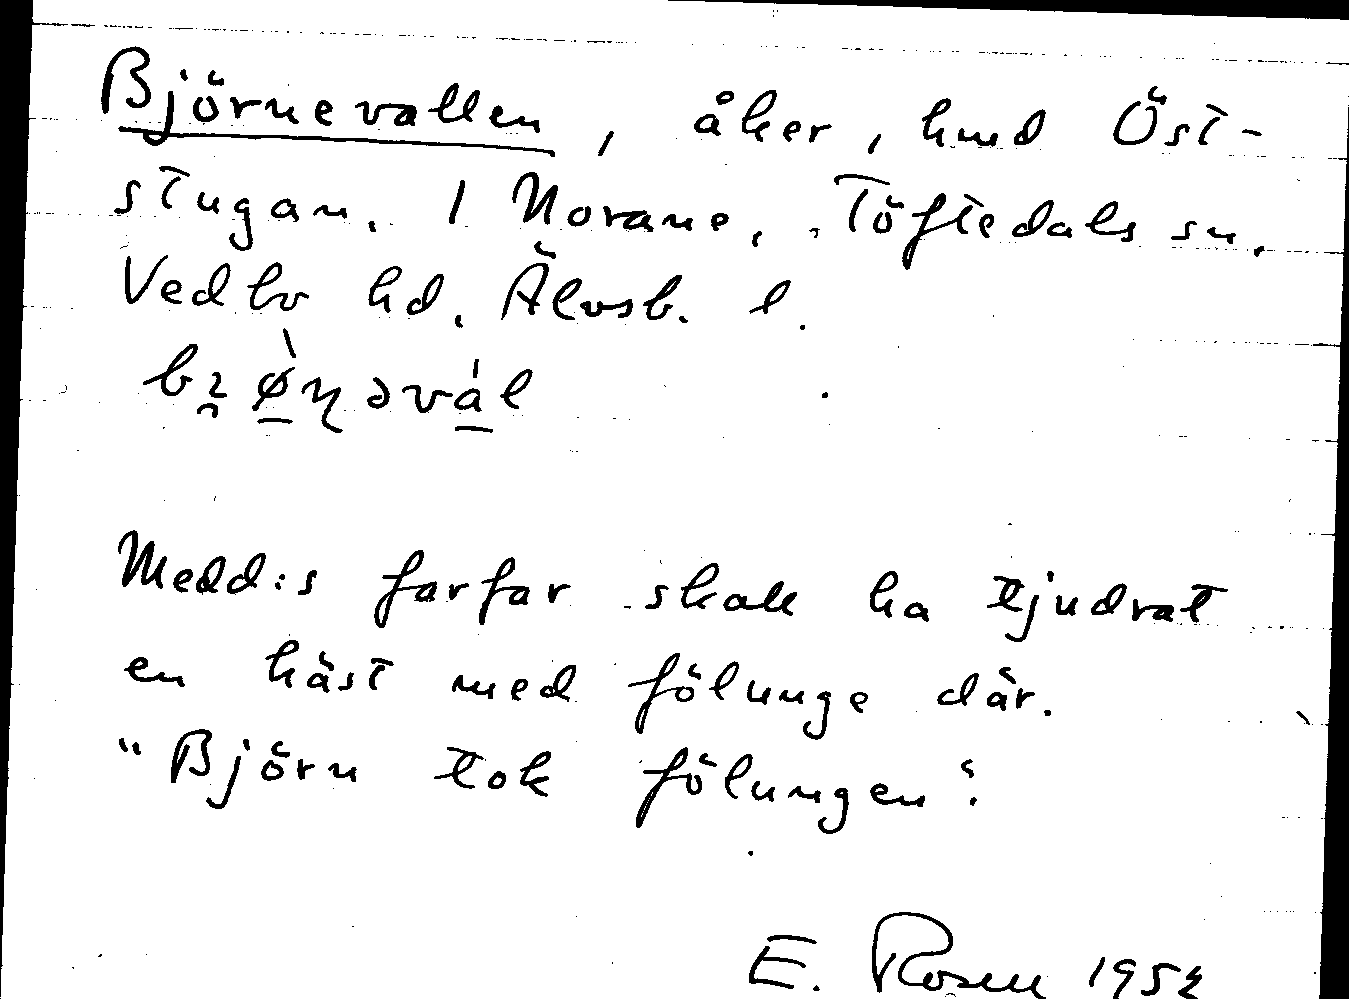 Björnevallen, åker, hmd Öst-
stugan. 1 Norane, Töftedals sn.
Vedbo hd. Älvsb. l.
Medd:s farfar skall ha tjudrat
en häst med fölunge där.
"Björn tok fölungen".
E. Rosen 1952